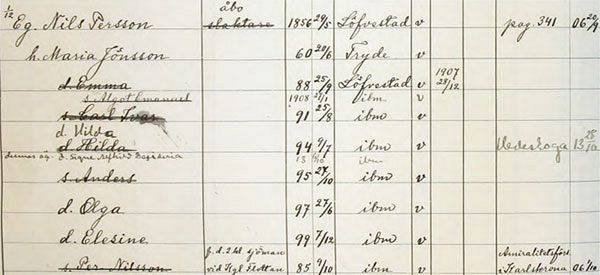 1/12 åbo
Eg. Nils Persson slaktare 1856 29/5 Löfvestad v pag. 341 06 20/9
h. Maria Jönsson 60 20/6 Tryde v
d. Emma 88 25/9 Löfvestad v 1907 28/12
s. Algot Emanuel 1908 21/1 ibm v
s. Carl Ivar 91 25/8 ibm v
d. Hilda
d. Hilda 94 9/7 ibm v Hedeskoga 13 28/10
dennes oä. d. Signe 13 ibm
s. Anders 95 27/10 ibm v
d. Olga 97 27/6 ibm v
d. Elesine 99 7/12 ibm v
f. d. 2 kl. sjöman Amiralitetsförs.
s. Per Nilsson vid Kgl Flottan 85 9/10 ibm v i Karlskrona 06